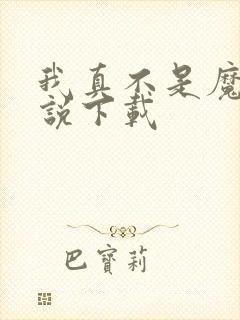 我真不是魔
說下載
巴寶莉